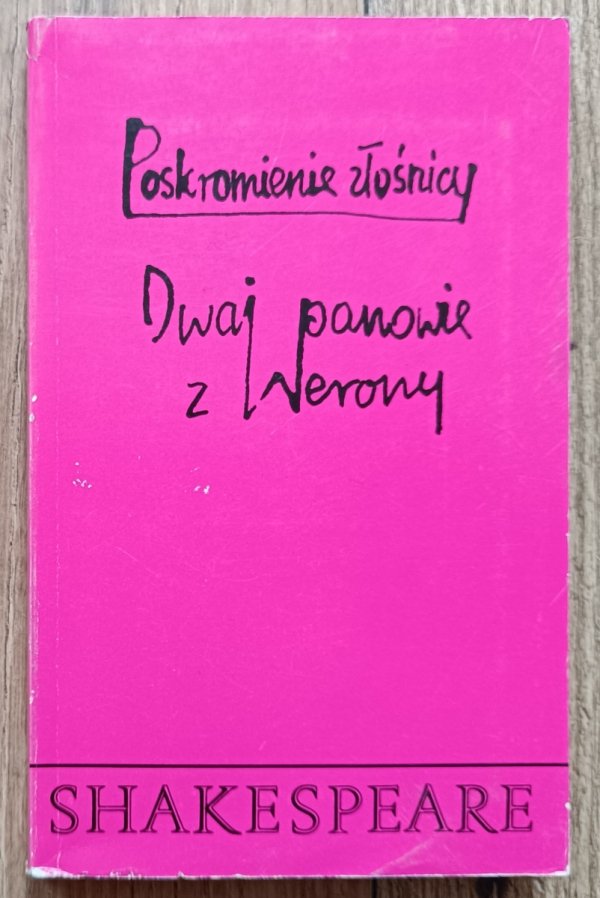 Poskromienie złośnicy
Dwaj panowie
z Werony
SHAKESPEARE